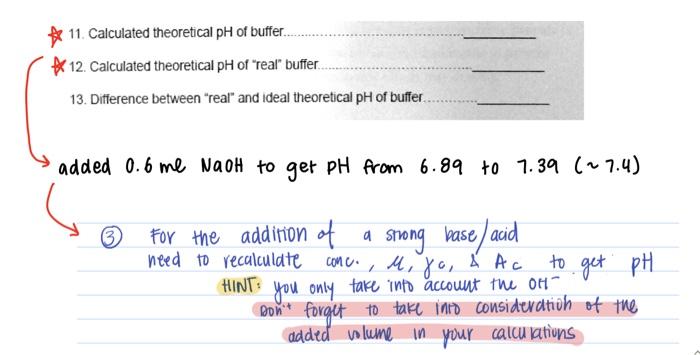 11. Calculated theoretical pH of buffer
12. Calculated theoretical pH of "real" buffer
13. Difference between "real" and ideal theoretical pH of buffer
added 0.6 ml NaOH to get pH from 6.89 to 7.39 (~7.4)
③ For the addition of a strong base/acid
need to recalculate conc., μ, γc, & Ac to get pH
HINT: you only take into account the OH⁻
Don't forget to take into consideration of the
added volume in your calculations